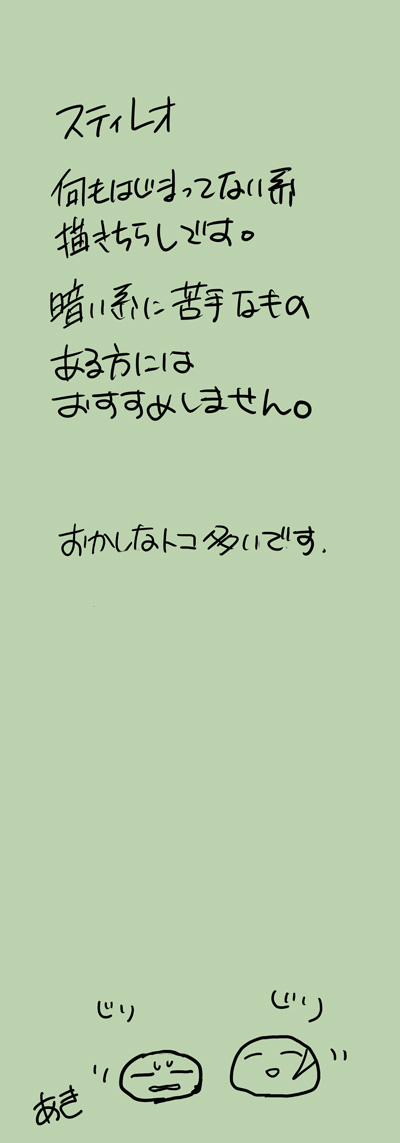 スティレオ
何もはじまってない系
描きちらしです。
暗い系に苦手なもの
ある方には
おすすめしません。
おかしなトコ多いです.
じり
じり
あき